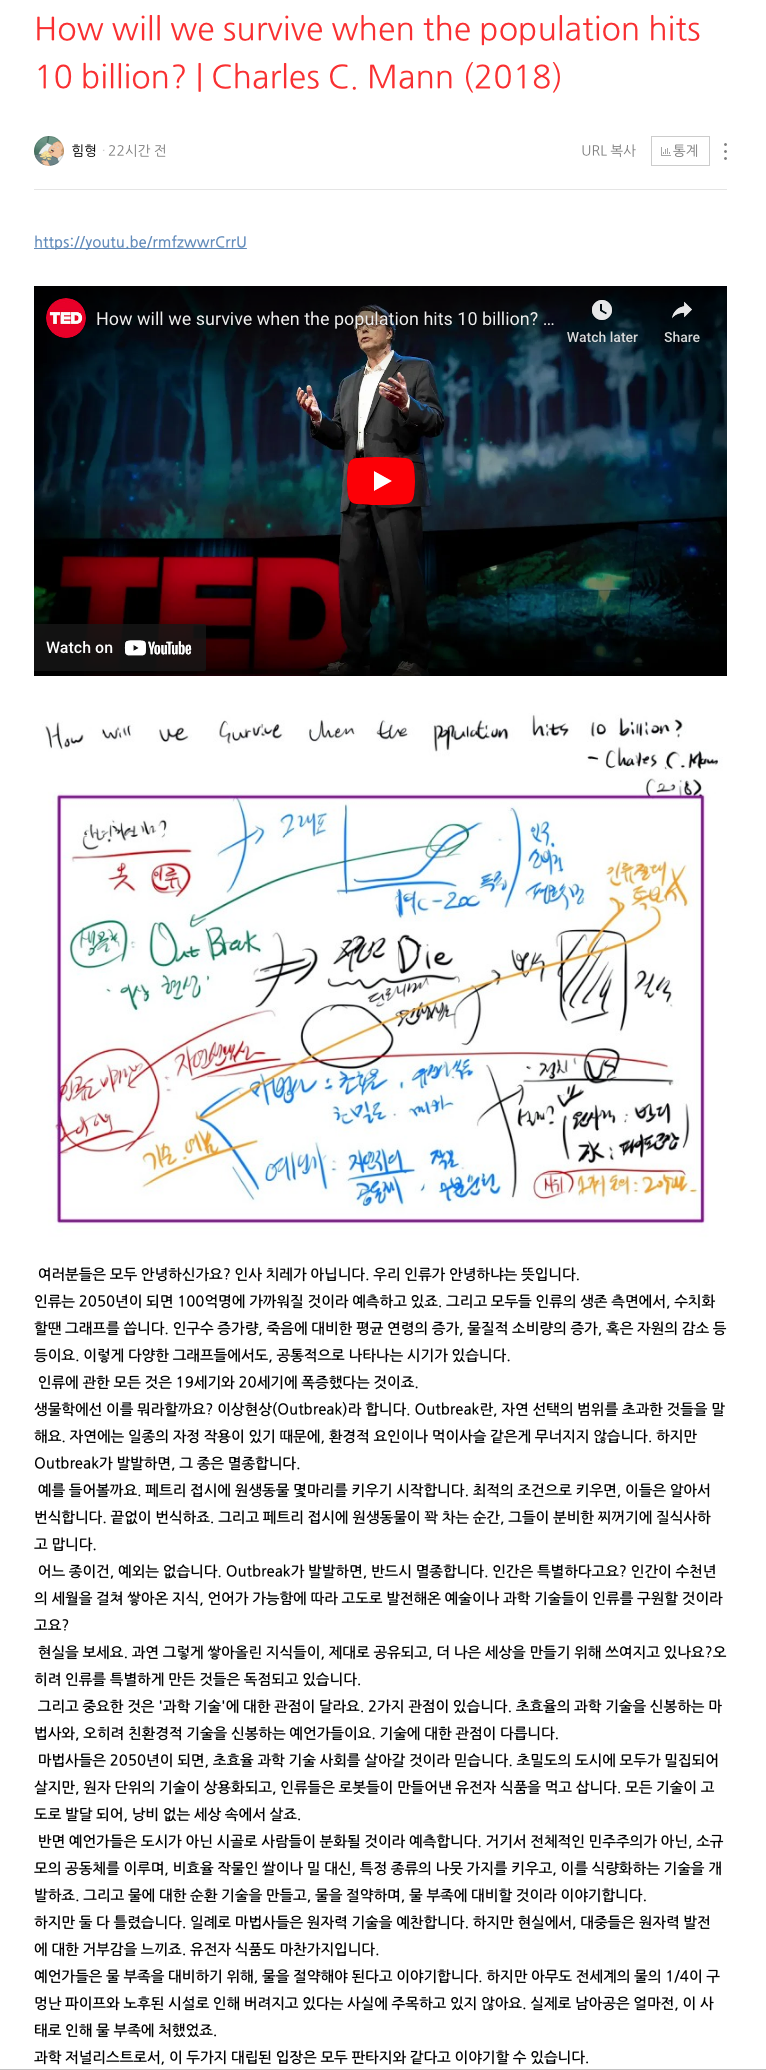 How will we survive when the population hits
10 billion? | Charles C. Mann (2018)
힘형 · 22시간 전
URL 복사
통계
https://youtu.be/rmfzwwrCrrU
TED
How will we survive when the population hits 10 billion? ...
Watch later
Share
TED
Watch on YouTube
How will we survive when the population hits 10 billion?
- Charles C. Mann
(2018)
그래프
19C-20C 폭증
인류
생물학: OutBreak
이상 현상
Die
번식
질식
자연선택
마법사: 초효율
초밀도
예언가:
정치
여러분들은 모두 안녕하신가요? 인사 치레가 아닙니다. 우리 인류가 안녕하냐는 뜻입니다.
인류는 2050년이 되면 100억명에 가까워질 것이라 예측하고 있죠. 그리고 모두들 인류의 생존 측면에서, 수치화
할땐 그래프를 씁니다. 인구수 증가량, 죽음에 대비한 평균 연령의 증가, 물질적 소비량의 증가, 혹은 자원의 감소 등
등이요. 이렇게 다양한 그래프들에서도, 공통적으로 나타나는 시기가 있습니다.
인류에 관한 모든 것은 19세기와 20세기에 폭증했다는 것이죠.
생물학에선 이를 뭐라할까요? 이상현상(Outbreak)라 합니다. Outbreak란, 자연 선택의 범위를 초과한 것들을 말
해요. 자연에는 일종의 자정 작용이 있기 때문에, 환경적 요인이나 먹이사슬 같은게 무너지지 않습니다. 하지만
Outbreak가 발발하면, 그 종은 멸종합니다.
예를 들어볼까요. 페트리 접시에 원생동물 몇마리를 키우기 시작합니다. 최적의 조건으로 키우면, 이들은 알아서
번식합니다. 끝없이 번식하죠. 그리고 페트리 접시에 원생동물이 꽉 차는 순간, 그들이 분비한 찌꺼기에 질식사하
고 맙니다.
어느 종이건, 예외는 없습니다. Outbreak가 발발하면, 반드시 멸종합니다. 인간은 특별하다고요? 인간이 수천년
의 세월을 걸쳐 쌓아온 지식, 언어가 가능함에 따라 고도로 발전해온 예술이나 과학 기술들이 인류를 구원할 것이라
고요?
현실을 보세요. 과연 그렇게 쌓아올린 지식들이, 제대로 공유되고, 더 나은 세상을 만들기 위해 쓰여지고 있나요?오
히려 인류를 특별하게 만든 것들은 독점되고 있습니다.
그리고 중요한 것은 '과학 기술'에 대한 관점이 달라요. 2가지 관점이 있습니다. 초효율의 과학 기술을 신봉하는 마
법사와, 오히려 친환경적 기술을 신봉하는 예언가들이요. 기술에 대한 관점이 다릅니다.
마법사들은 2050년이 되면, 초효율 과학 기술 사회를 살아갈 것이라 믿습니다. 초밀도의 도시에 모두가 밀집되어
살지만, 원자 단위의 기술이 상용화되고, 인류들은 로봇들이 만들어낸 유전자 식품을 먹고 삽니다. 모든 기술이 고
도로 발달 되어, 낭비 없는 세상 속에서 살죠.
반면 예언가들은 도시가 아닌 시골로 사람들이 분화될 것이라 예측합니다. 거기서 전체적인 민주주의가 아닌, 소규
모의 공동체를 이루며, 비효율 작물인 쌀이나 밀 대신, 특정 종류의 나뭇 가지를 키우고, 이를 식량화하는 기술을 개
발하죠. 그리고 물에 대한 순환 기술을 만들고, 물을 절약하며, 물 부족에 대비할 것이라 이야기합니다.
하지만 둘 다 틀렸습니다. 일례로 마법사들은 원자력 기술을 예찬합니다. 하지만 현실에서, 대중들은 원자력 발전
에 대한 거부감을 느끼죠. 유전자 식품도 마찬가지입니다.
예언가들은 물 부족을 대비하기 위해, 물을 절약해야 된다고 이야기합니다. 하지만 아무도 전세계의 물의 1/4이 구
멍난 파이프와 노후된 시설로 인해 버려지고 있다는 사실에 주목하고 있지 않아요. 실제로 남아공은 얼마전, 이 사
태로 인해 물 부족에 처했었죠.
과학 저널리스트로서, 이 두가지 대립된 입장은 모두 판타지와 같다고 이야기할 수 있습니다.